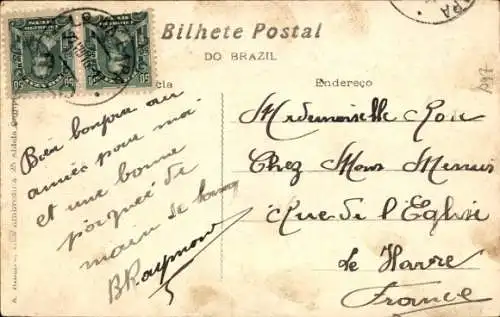 Bilhete Postal
DO BRAZIL
Endereço
Bien bonjour au
années pour moi
et une bonne
poignée de
main de
BRaymond
Mademoiselle Rose
Chez Mons
Rue de l'Eglise
Le Havre
France